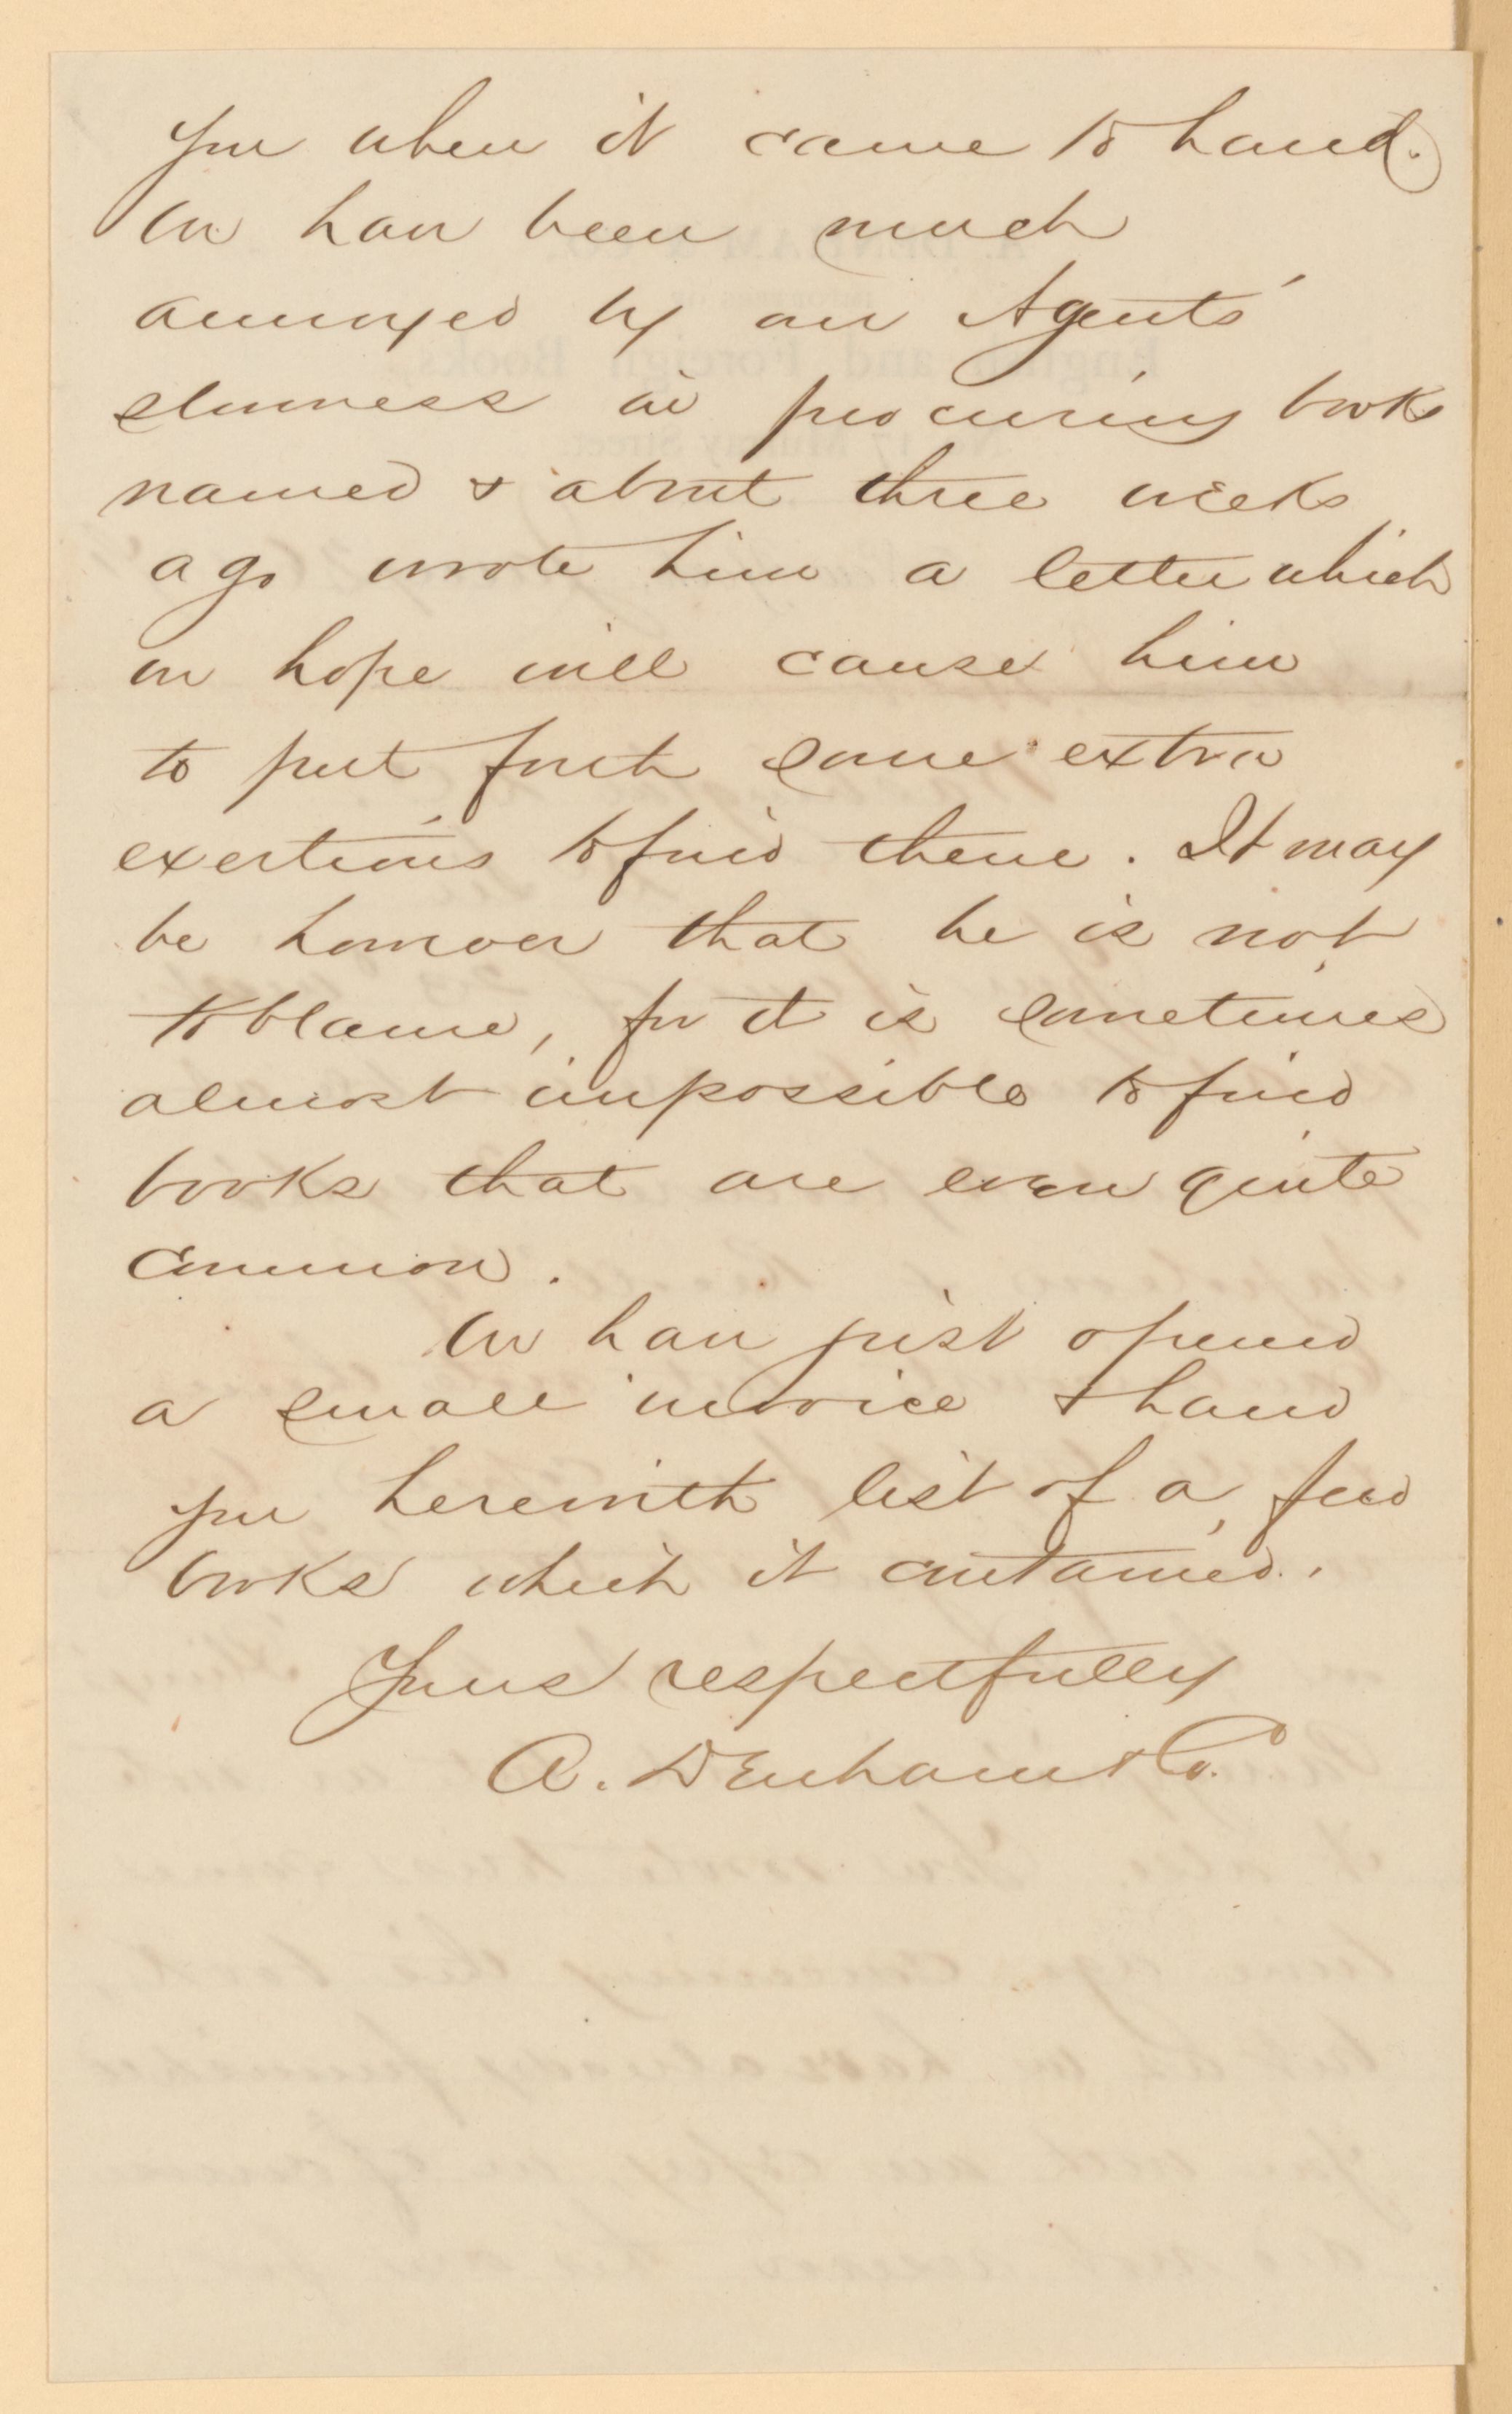 you when it came to hand.
We have been much
annoyed by our Agents'
slowness in procuring books
named & about three weeks
ago wrote him a letter which
we hope will cause him
to put forth some extra
exertions to find them. It may
be however that he is not
to blame, for it is sometimes
almost impossible to find
books that are even quite
common.
We have just opened
a small invoice & hand
you herewith list of a few
books which it contained.
Yours respectfully
A. Denham & Co.